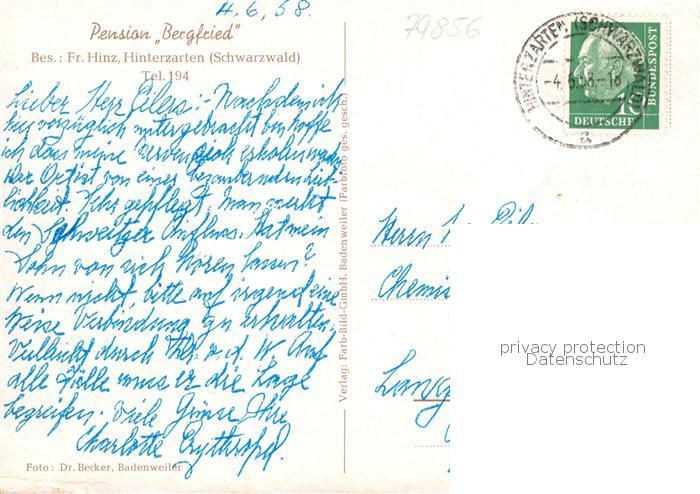 4.6.58.
79856
Pension „Bergfried"
Bes.: Fr. Hinz, Hinterzarten (Schwarzwald)
Tel. 194
HINTERZARTEN (SCHWARZWALD)
-4.6.58.-18
a
10
DEUTSCHE
BUNDESPOST
Lieber Herr Eilers:- Nachdem ich
hier vorzüglich untergebracht bin hoffe
ich dass meine Nerven sich erholen
Der Ort ist von einer bezaubernden Lieb-
lichkeit. Sehr gepflegt, man merkt
den Schweitzer Einfluss. Hat mein
Sohn von sich hören lassen?
Wenn nicht, bitte auf irgend eine
Weise Verbindung zu erhalten.
Vielleicht durch v. d. W. Auf
alle Fälle muss er die Lage
begreifen. Viele Grüsse Ihre
Charlotte Erythropel.
Foto: Dr. Becker, Badenweiler
Verlag: Farb-Bild-GmbH. Badenweiler (Farbfoto ges. gesch.)
Herrn
Chemis
privacy protection
Datenschutz